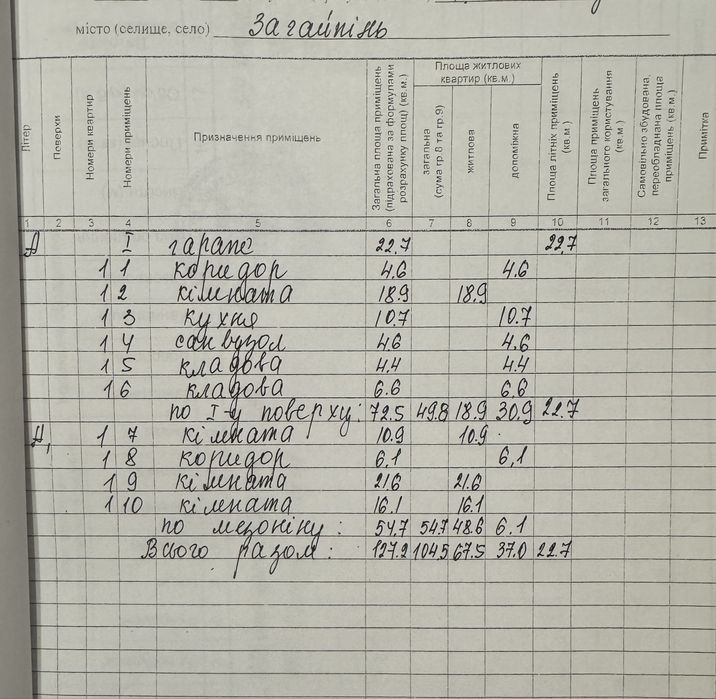 місто (селище, село) Загайпінь
Літер Поверхи Номери квартир Номери приміщень Призначення приміщень Загальна площа приміщень (підрахована за формулами розрахунку площ) (кв.м.) Площа житлових квартир (кв.м.) загальна (сума гр.8 та гр.9) житлова допоміжна Площа літніх приміщень (кв.м.) Площа приміщень загального користування (кв.м.) Самовільно збудована, переобладнана площа приміщень (кв.м.) Примітка
1 2 3 4 5 6 7 8 9 10 11 12 13
А I гараж 22.7 22.7
1 1 коридор 4.6 4.6
1 2 кімната 18.9 18.9
1 3 кухня 10.7 10.7
1 4 санвузол 4.6 4.6
1 5 кладова 4.4 4.4
1 6 кладова 6.6 6.6
по I-у поверху: 72.5 49.8 18.9 30.9 22.7
А, 1 7 кімната 10.9 10.9
1 8 коридор 6.1 6,1
1 9 кімната 21.6 21.6
1 10 кімната 16.1 16.1
по мезоніну: 54.7 54.7 48.6 6.1
Всього разом: 127.2 104.5 67.5 37.0 22.7